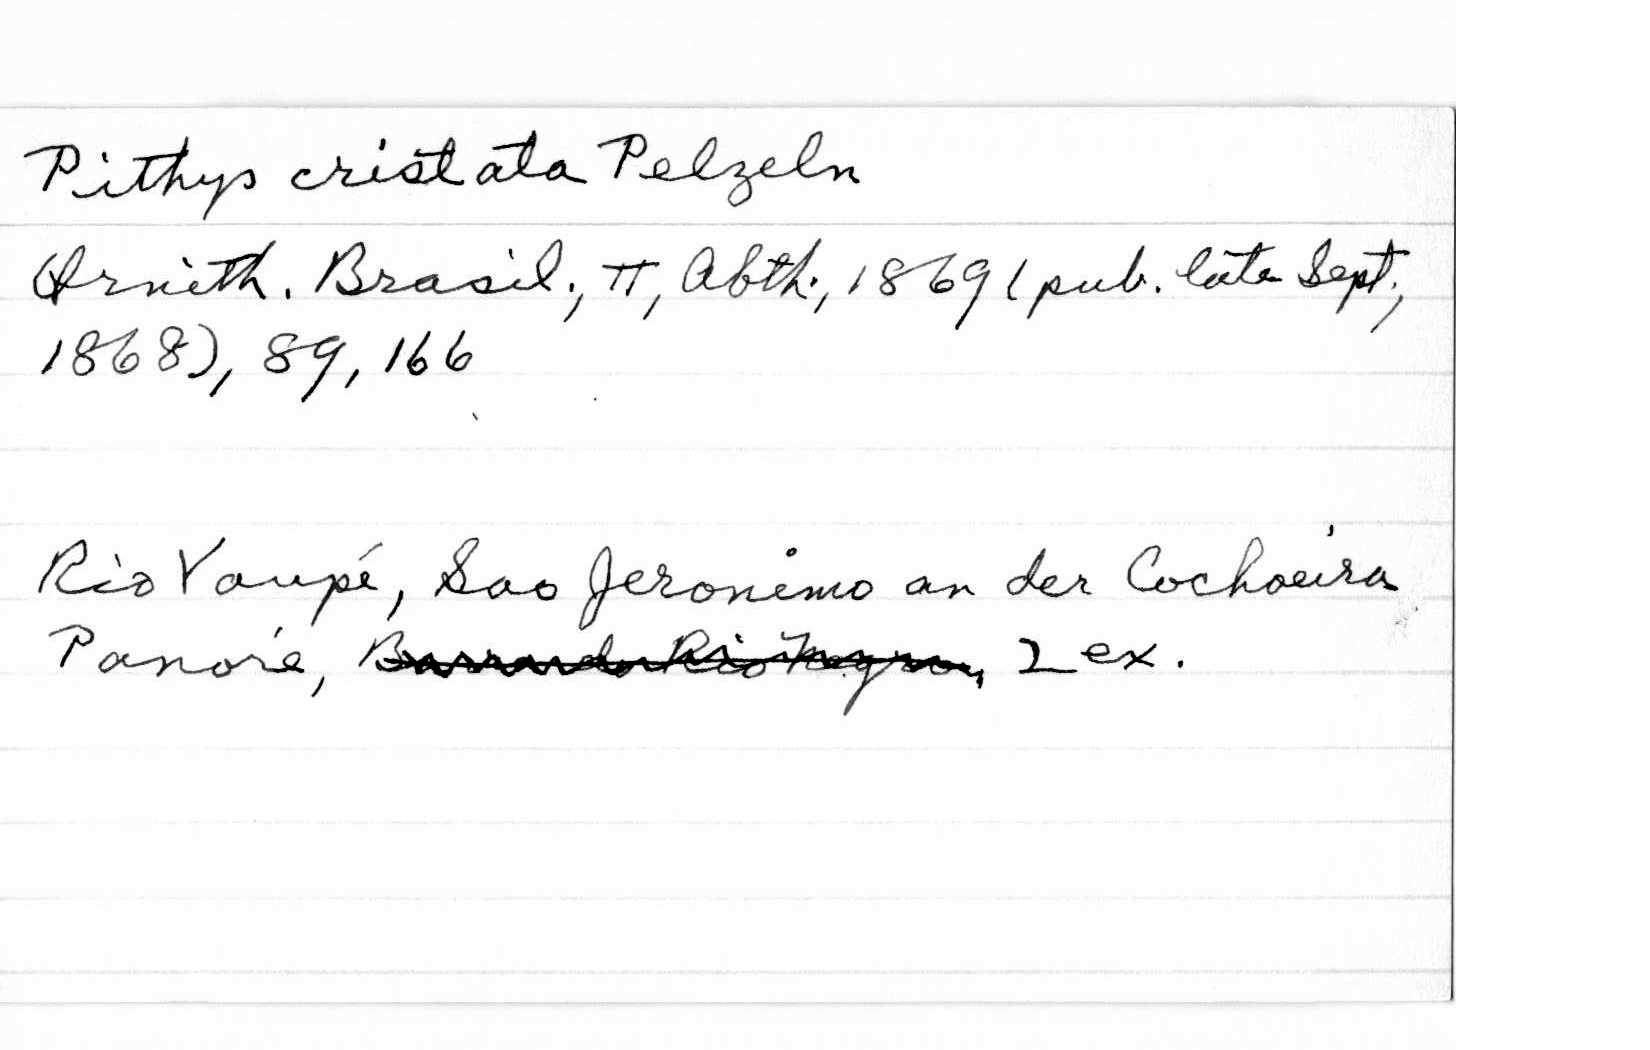 Pithys cristata Pelzeln
Ornith. Brasil., II, Abth., 1869 (pub. late Sept.,
1868), 89, 166
Rio Vaupé, Sao Jeronimo an der Cochoeira
Panoré, Barra do Rio Negro, 2 ex.